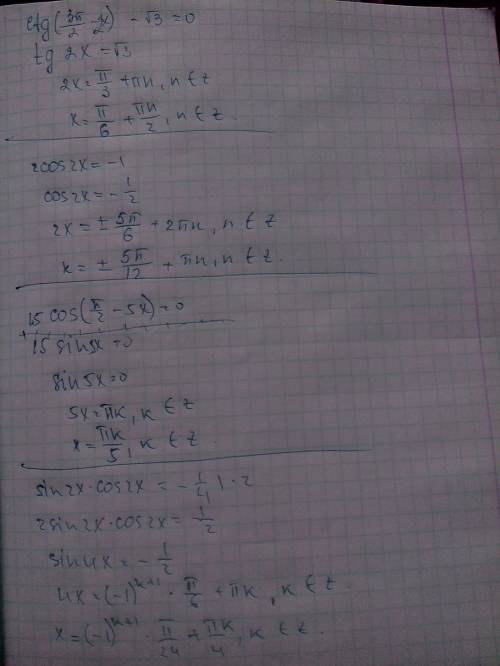 ctg(3π/2 - 2x) - √3 = 0
tg 2x = √3
2x = π/3 + πn, n ∈ z
x = π/6 + πn/2, n ∈ z.
2cos2x = -1
cos2x = -1/2
2x = ± 5π/6 + 2πn, n ∈ z
x = ± 5π/12 + πn, n ∈ z.
15 cos(π/2 - 5x) = 0
15 sin5x = 0
sin5x = 0
5x = πk, k ∈ z
x = πk/5, k ∈ z.
sin2x · cos2x = -1/4 | · 2
2sin2x · cos2x = -1/2
sin4x = -1/2
4x = (-1)^(k+1) · π/6 + πk, k ∈ z.
x = (-1)^(k+1) · π/24 + πk/4, k ∈ z.